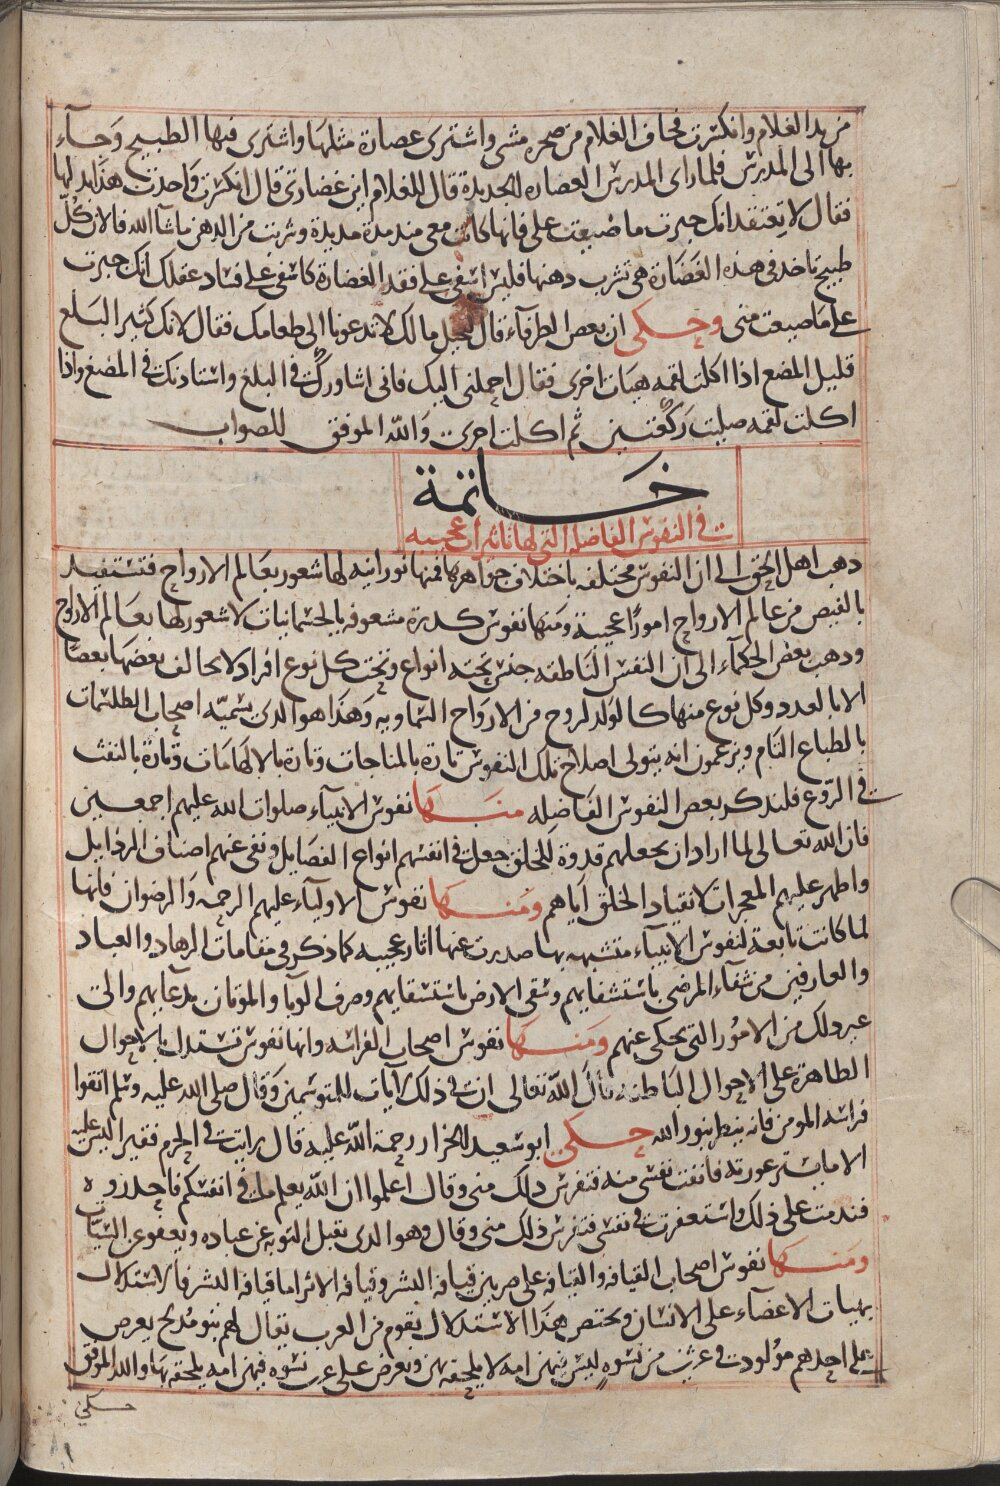 من يد الغلام وانكسرت فخاف الغلام من صحره مشى واشترى عصارة مثلها واشترى فيها الطبيخ وجاء
بها الى المدرس فلما راى المدرس العصاره الجديدة قال للغلام اين غضارتى قال انكسرت واخذت هذا بدلها
فقال لا تعتقد انك جبرت ما ضيعت على فانها كانت معى منذ مدة مديدة وشربت من الدهن ما شآ الله فالان كل
طبيخ تاخذ فى هذه الغضارة هى تشرب دهنها فليس اسفى على فقد الغضارة كاسفى على فساد عقلك انك جبرت
على ما ضيعت منى وحكى ان بعض الظرفآء قال لبخيل مالك لا تدعونا الى طعامك فقال لانك كثير البلع
قليل المضع اذا اكلت لقمه هيات اخرى فقال احملنى اليك فانى اشاورك فى البلغ واستاذنك فى المضغ واذا
اكلت لقمه صليت ركعتين ثم اكلت اخرى والله الموفق للصواب
خاتمة
فى النفوس الفاضله التى لها تاثيرات عجيبه
ذهب اهل الحق الى ان النفوس مختلفه باختلاف جواهرها فمنها نورانيه لها شعور بعالم الارواح فتستفيد
بالفيض من عالم الارواح امورًا عجيبة ومنها نفوس كدرة مشعوفه بالجسمانيات لا شعور لها بعالم الارواح
وذهب بعض الحكمآء الى ان النفس الناطقه جنس تحته انواع وتحت كل نوع افراد لا يخالف بعضها بعضًا
الا بالعدد وكل نوع منها كالولد لروح من الارواح السماويه وهذا هو الذى يسميه اصحاب الطلسمات
بالطباع التام ويزعمون انه يتولى اصلاح تلك النفوس تارة بالمناجات وتارة بالالهامات وتارة بالنفث
فى الروع فلنذكر بعض النفوس الفاضله منها نفوس الانبيآء صلوات الله عليهم اجمعين
فان الله تعالى لما اراد ان يجعلهم قدوة للخلق جعل فى انفسهم انواع الفضايل ونفى عنهم اصناف الرذايل
واظهر عليهم المعجزات لانقياد الخلق اياهم ومنها نفوس الاوليآء عليهم الرحمه والرضوان فانها
لما كانت تابعة لنفوس الانبيآء متشبهه بها صدرت عنها اثار عجيبه كما ذكر فى مقامات الزهاد والعباد
والعارفين من شفآء المرضى باستشفايهم وسقى الارض باستسقايهم وصرف الوبا والموتان بدعآيهم والى
غير ذلك من الامور التى يحكى عنهم ومنها نفوس اصحاب الفراسه وانها نفوس تستدل بالاحوال
الظاهرة على الاحوال الباطنه قال الله تعالى ان فى ذلك لآيات للمتوسمين وقال صلى الله عليه وسلم اتقوا
فراسه المومن فانه ينظر بنور الله حكى ابو سعيد الخراز رحمة الله عليه قال رايت فى الحرم فقير اليس عليه
الا ما يستر عورته فانفت نفسى منه فتفرس ذلك منى وقال اعلموا ان الله يعلم ما فى انفسكم فاحذروه
فندمت على ذلك واستغفرت فى نفسى فتفرس ذلك منى وقال وهو الذى يقبل التوبه عن عباده ويعفو عن السيات
ومنها نفوس اصحاب القيافه والقيافه على ضربين قيافه البشر وقيافه الاثر اما قيافه البشر فالاستدلال
بهيات الاعضآء على الانسان ويختص بهذا الاستدلال بقوم من العرب يقال لهم بنو مدلج يعرض
على احدهم مولود فى عشرين من نسوه ليس فيهن امه لا يلحقه بهن ويعرض على عشرين نسوه فيهن امه يلحقه بها والله الموفق
حكى